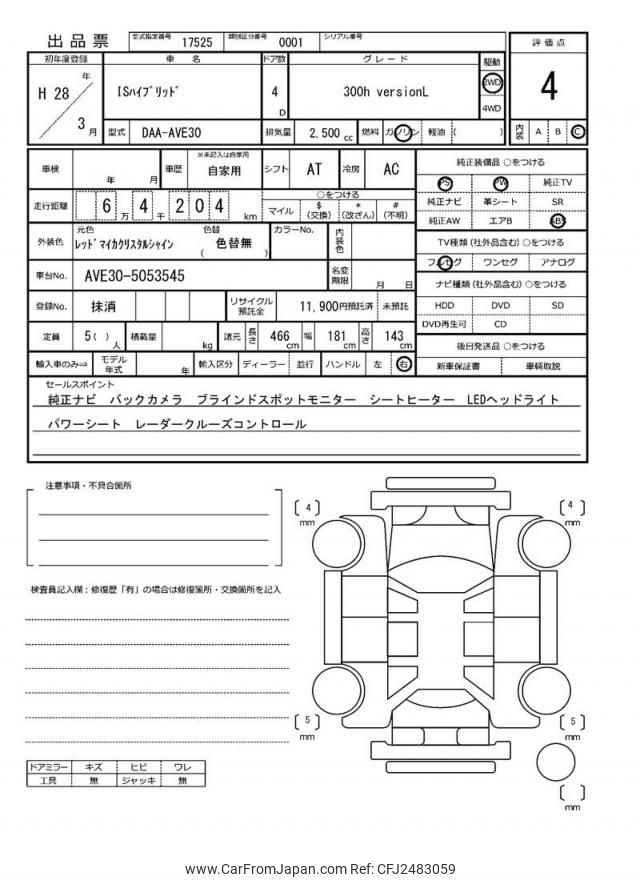 出品票 型式指定番号 17525 類別区分番号 0001 シリアル番号
初年度登録 車名 ドア数 グレード 駆動 評価点
H 28 年 3 月 ISハイブリッド 4 D 300h versionL 2WD 4WD 4
型式 DAA-AVE30 排気量 2,500 cc 燃料 ガソリン 軽油 ( ) 内装 A B C
車検 年 月 車歴 ※未記入は自家用 自家用 シフト AT 冷房 AC 純正装備品 ○をつける
PS PW 純正TV
走行距離 6 万 4 千 2 0 4 km ○をつける
マイル $ (交換) * (改ざん) # (不明)
純正ナビ 革シート SR
純正AW エアB ABS
外装色 元色 レッドマイカクリスタルシャイン 色替 ( 色替無 ) カラーNo. 内装色
TV種類 (社外品含む) ○をつける
フルセグ ワンセグ アナログ
車台No. AVE30-5053545 名変期限 月 日
ナビ種類 (社外品含む) ○をつける
登録No. 抹消 リサイクル預託金 11,900円預託済 未預託
HDD DVD SD
DVD再生可 CD
定員 5 ( ) 人 積載量 kg 諸元 長さ 466 cm 幅 181 cm 高さ 143 cm
後日発送品 ○をつける
輸入車のみ⇒ モデル年式 年 輸入区分 ディーラー 並行 ハンドル 左 右
新車保証書 車輌取説
セールスポイント
純正ナビ バックカメラ ブラインドスポットモニター シートヒーター LEDヘッドライト
パワーシート レーダークルーズコントロール
注意事項・不具合箇所
[ 4 ] mm
[ 4 ] mm
検査員記入欄：修復歴「有」の場合は修復箇所・交換箇所を記入
[ 5 ] mm
[ 5 ] mm
ドアミラー キズ ヒビ ワレ
工具 無 ジャッキ 無
[ ] mm
www.CarFromJapan.com Ref: CFJ2483059